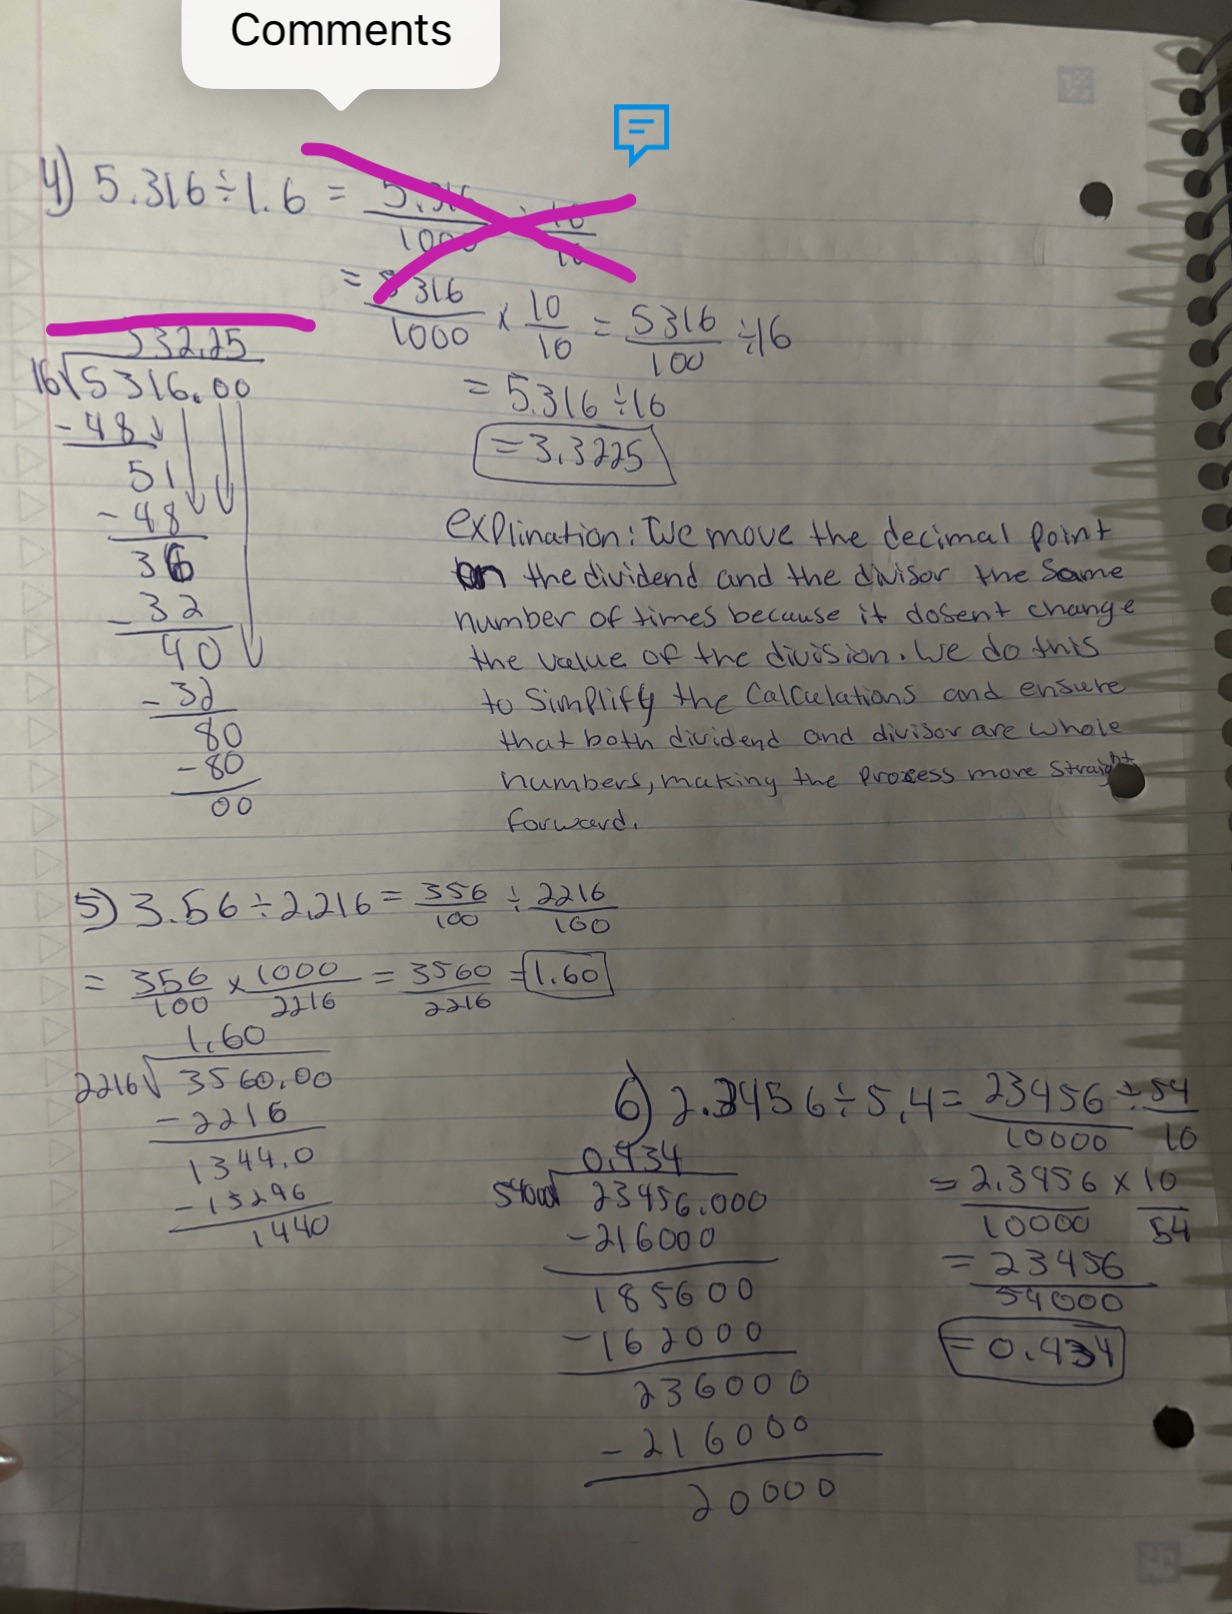 Comments
4) 5.316÷1.6 = 5.316/1000 ÷ 16/10
= 5316/1000 x 10/16 = 5316/100 ÷16
= 5.316÷16
= 3.3225
332.25
16 5316.00
-48
51
-48
36
-32
40
-32
80
-80
00
explination: We move the decimal point
on the dividend and the divisor the same
number of times because it dosent change
the value of the division. We do this
to simplify the calculations and ensure
that both dividend and divisor are whole
numbers, making the process more straight
forward.
5) 3.56÷2.216 = 356/100 ÷ 2216/100
= 356/100 x 1000/2216 = 3560/2216 = 1.60
1.60
2216 3560.00
-2216
1344.0
-13296
1440
6) 2.3456÷5.4 = 23456/10000 ÷ 54/10
= 2.3456/10000 x 10/54
= 23456/54000
= 0.434
0.434
54000 23456.000
-216000
185600
-162000
236000
-216000
20000